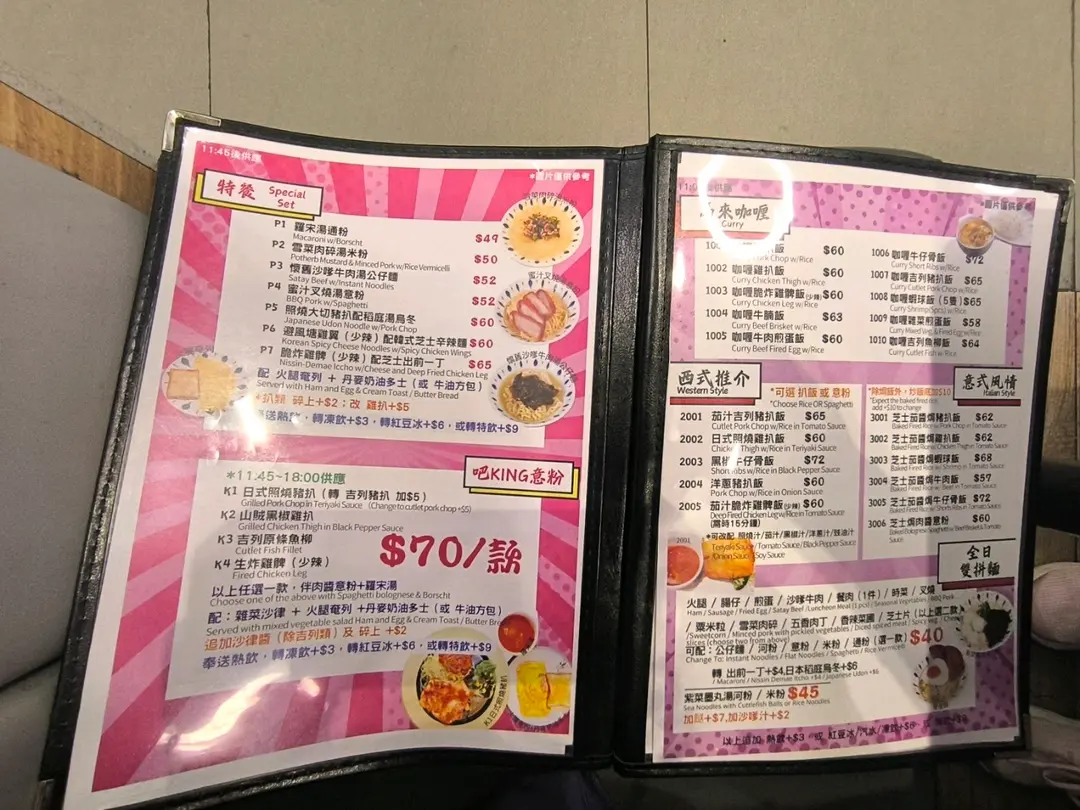 11:45後供應
*圖片僅供參考
特餐 Special Set
P1 羅宋湯通粉 $49
Macaroni w/Borscht
P2 雪菜肉碎湯米粉 $50
Potherb Mustard & Minced Pork w/Rice Vermicelli
P3 懷舊沙嗲牛肉湯公仔麵 $52
Satay Beef w/Instant Noodles
P4 蜜汁叉燒湯意粉 $52
BBQ Pork w/Spaghetti
P5 照燒大切豬扒配稻庭湯烏冬 $60
Japanese Udon Noodle w/Pork Chop
P6 避風塘雞翼(少辣)配韓式芝士辛辣麵 $60
Korean Spicy Cheese Noodles w/Spicy Chicken Wings
P7 脆炸雞髀(少辣)配芝士出前一丁 $65
Nissin-Demae Iccho w/Cheese and Deep Fried Chicken Leg
配 火腿奄列 + 丹麥奶油多士 (或 牛油方包)
Served with Ham and Egg & Cream Toast / Butter Bread
*扒類 碎上+$2;改 雞扒+$5
奉送熱飲,轉凍飲+$3,轉紅豆冰+$6,或轉特飲+$9
吧KING意粉
*11:45~18:00供應
K1 日式照燒豬扒 (轉 吉列豬扒 加$5)
Grilled Pork Chop in Teriyaki Sauce (Change to cutlet pork chop +$5)
K2 山賊黑椒雞扒
Grilled Chicken Thigh in Black Pepper Sauce
K3 吉列原條魚柳
Cutlet Fish Fillet
K4 生炸雞髀 (少辣)
Fired Chicken Leg
$70/款
以上任選一款,伴肉醬意粉+羅宋湯
Choose one of the above with Spaghetti bolognese & Borscht
配:雜菜沙律 + 火腿奄列 +丹麥奶油多士 (或 牛油方包)
Served with mixed vegetable salad Ham and Egg & Cream Toast / Butter
追加沙律醬 (除吉列類) 及 碎上 +$2
奉送熱飲,轉凍飲+$3,轉紅豆冰+$6,或轉特飲+$9
K1日式照燒豬扒
*圖片僅供參考
來咖喱
Curry
$60
Pork Chop w/Rice
1002 咖喱雞扒飯 $60
Curry Chicken Thigh w/Rice
1003 咖喱脆炸雞髀飯(少辣) $60
Curry Chicken Leg w/Rice
1004 咖喱牛腩飯 $63
Curry Beef Brisket w/Rice
1005 咖喱牛肉煎蛋飯 $60
Curry Beef Fired Egg w/Rice
1006 咖喱牛仔骨飯 $72
Curry Short Ribs w/Rice
1007 咖喱吉列豬扒飯 $65
Curry Cutlet Pork Chop w/Rice
1008 咖喱蝦球飯 (5隻) $65
Curry Shrimp(5pcs) w/Rice
1009 咖喱雜菜煎蛋飯 $58
Curry Mixed Veg & Fired Egg w/Rice
1010 咖喱吉列魚柳飯 $64
Curry Cutlet Fish w/Rice
西式推介
Western Style
*可選 扒飯 或 意粉
*Choose Rice OR Spaghetti
2001 茄汁吉列豬扒飯 $65
Cutlet Pork Chop w/Rice in Tomato Sauce
2002 日式照燒雞扒飯 $60
Chicken Thigh w/Rice in Teriyaki Sauce
2003 黑椒牛仔骨飯 $72
Short Ribs w/Rice in Black Pepper Sauce
2004 洋蔥豬扒飯 $60
Pork Chop w/Rice in Onion Sauce
2005 茄汁脆炸雞髀飯(少辣) $60
Deep Fired Chicken Leg w/Rice in Tomato Sauce
(需時15分鐘)
*可改配 照燒汁/茄汁/黑椒汁/洋蔥汁/豉油汁
Teriyaki Sauce / Tomato Sauce / Black Pepper Sauce
/Onion Sauce / Soy Sauce
2001
意式風情
Italian Style
*除焗飯外,炒飯底加$10
*Expect the baked fired rice
add +$10 to change
3001 芝士茄醬焗豬扒飯 $62
Baked Fired Rice w/Pork Chop in Tomato Sauce
3002 芝士茄醬焗雞扒飯 $62
Baked Fired Rice w/Chicken Thigh in Tomato Sauce
3003 芝士茄醬焗蝦球飯 $68
Baked Fired Rice w/Shrimp in Tomato Sauce
3004 芝士茄醬焗牛肉飯 $57
Baked Fired Rice w/Beef in Tomato Sauce
3005 芝士茄醬焗牛仔骨飯 $72
Baked Fired Rice w/Shorts Ribs in Tomato Sauce
3006 芝士焗肉醬意粉 $60
全日
雙拼麵
火腿 / 腸仔 / 煎蛋 / 沙嗲牛肉 / 餐肉 (1件) / 時菜 / 叉燒
Ham / Sausage / Fried Egg / Satay Beef /Luncheon Meat (1 pce) / Seasonal Vegetables / BBQ Pork
/ 粟米粒 / 雪菜肉碎 / 五香肉丁 / 香辣菜圃 / 芝士片 (以上選二款)
/Sweetcorn / Minced pork with pickled vegetables / Diced spiced meat / Spicy veg / Cheese
slices (choose two from above)
可配:公仔麵 / 河粉 / 意粉 / 米粉 / 通粉 (選一款) $40
Change To: Instant Noodles / Flat Noodles / Spaghetti / Rice Vermicelli
轉 出前一丁+$4,日本稻庭烏冬+$6
/ Macaroni / Nissin Demae Itcho +$4 / Japanese Udon +$6
紫菜墨丸湯河粉 / 米粉 $45
Sea Noodles with Cuttlefish Balls or Rice Noodles
加餸+$7,加沙嗲汁+$2
以上追加 熱飲+$3 或 紅豆冰/汽水/凍飲+$6